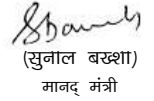 (सुनील बख्शी)
मानद् मंत्री